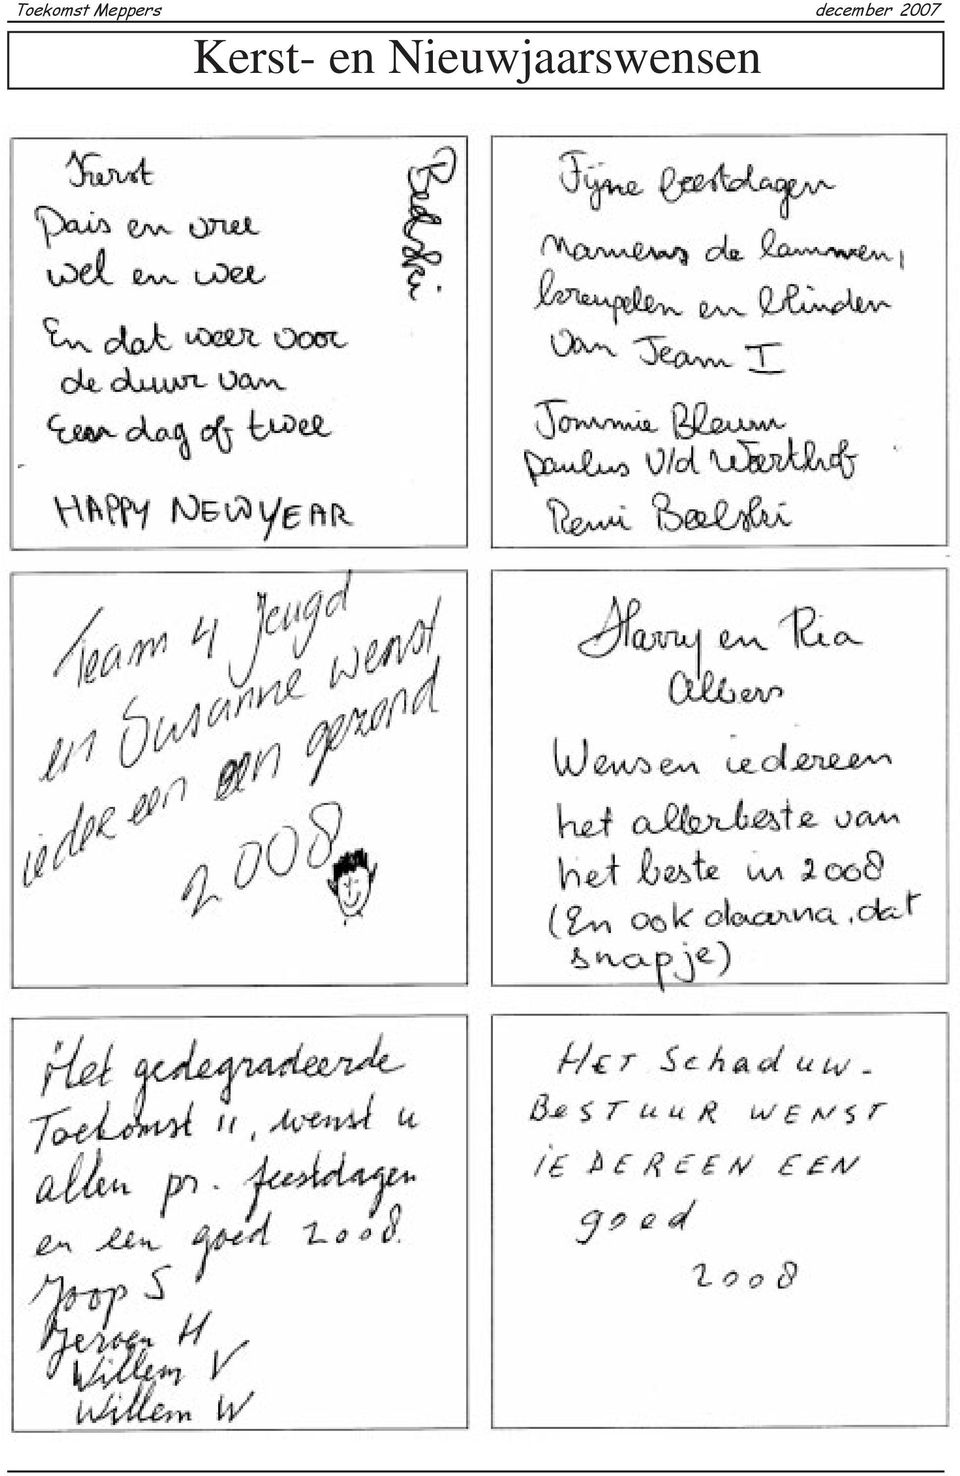 Toekomst Meppers december 2007
Kerst- en Nieuwjaarswensen
Kerst
Pais en vree
wel en wee
En dat weer voor
de duur van
Een dag of twee
HAPPY NEW YEAR
Belski
Fijne feestdagen
Namens de lammen,
kreupelen en blinden
van Team I
Jommie Bleum
Paulus v/d Werthof
Remi Beelski
Team 4 Jeugd
en Susanne wenst
iedereen een gezond
2008
Harry en Ria
Albers
Wensen iedereen
het allerbeste van
het beste in 2008
(En ook daarna, dat
snap je)
Het gedegradeerde
Toekomst II, wenst u
allen pr. feestdagen
en een goed 2008.
Joop S
Jeroen H
Willem V
Willem W
HET Schaduw-
BESTUUR WENST
IEDEREEN EEN
goed
2008